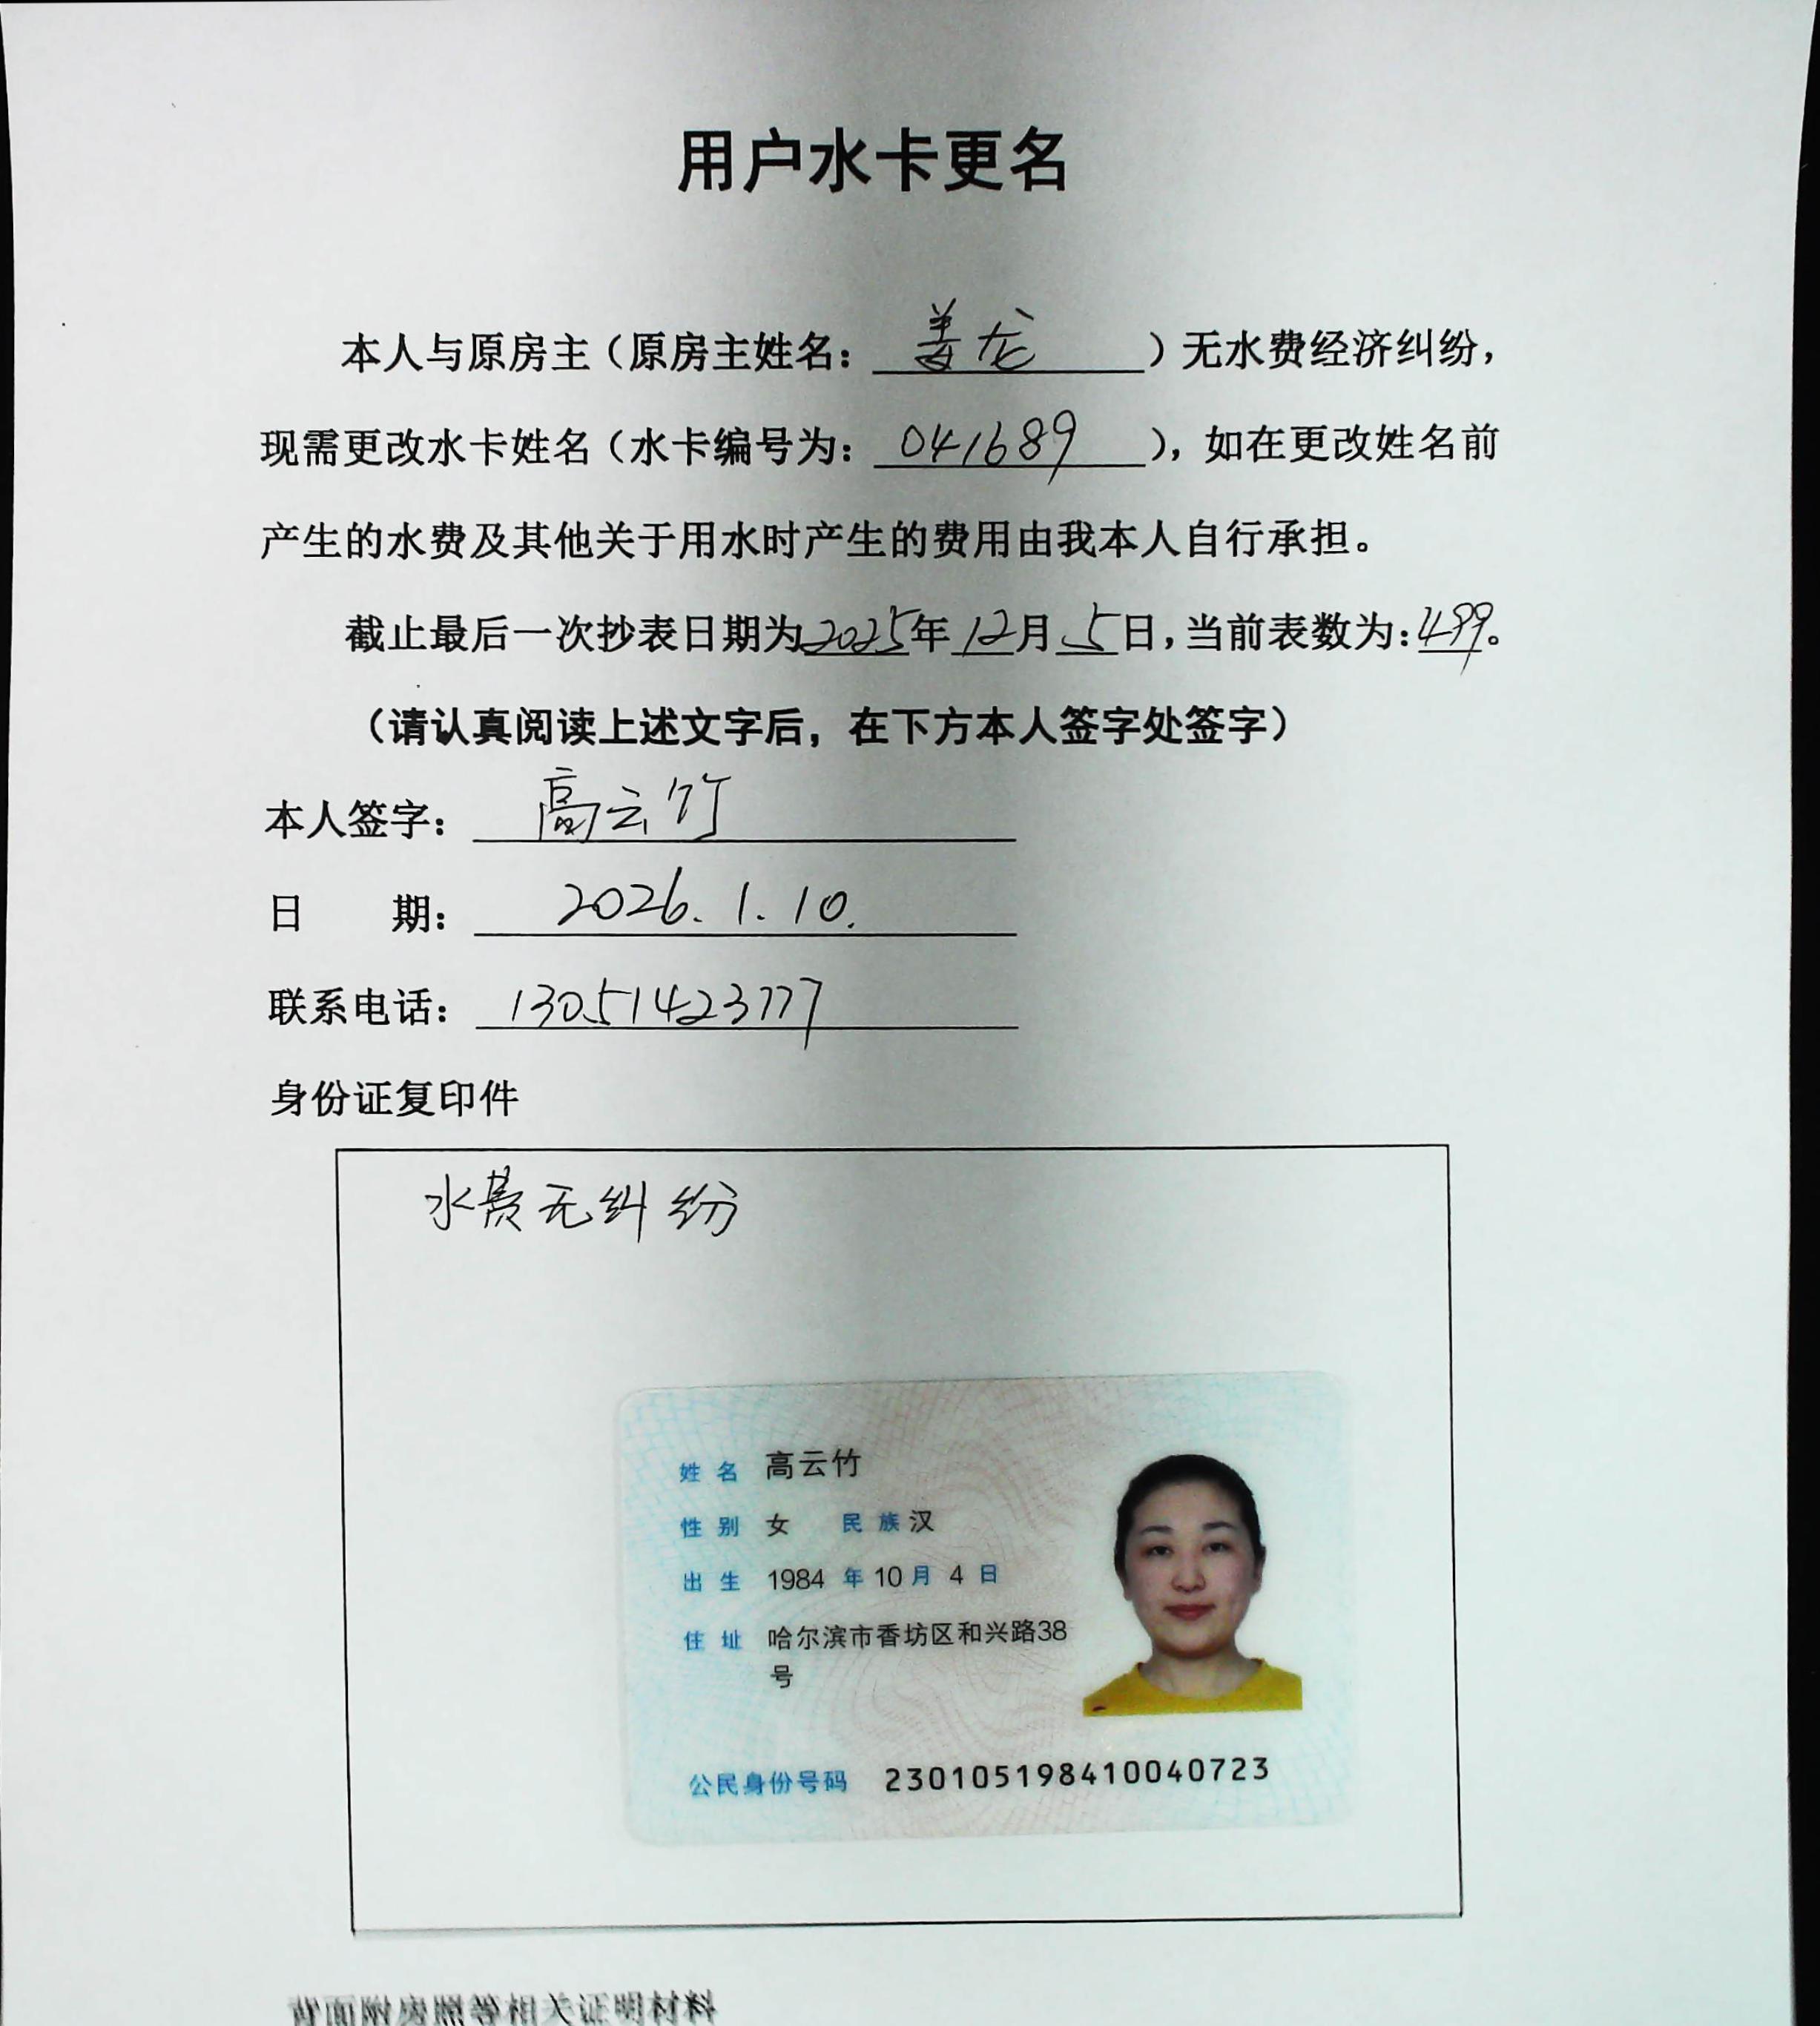 用户水卡更名
本人与原房主（原房主姓名：姜龙）无水费经济纠纷，
现需更改水卡姓名（水卡编号为：041689），如在更改姓名前
产生的水费及其他关于用水时产生的费用由我本人自行承担。
截止最后一次抄表日期为2025年12月5日，当前表数为：499。
（请认真阅读上述文字后，在下方本人签字处签字）
本人签字：高云竹
日 期：2026.1.10.
联系电话：13051423777
身份证复印件
水费无纠纷
姓名 高云竹
性别 女 民族 汉
出生 1984 年 10 月 4 日
住址 哈尔滨市香坊区和兴路38
号
公民身份号码 230105198410040723
背面附房照等相关证明材料